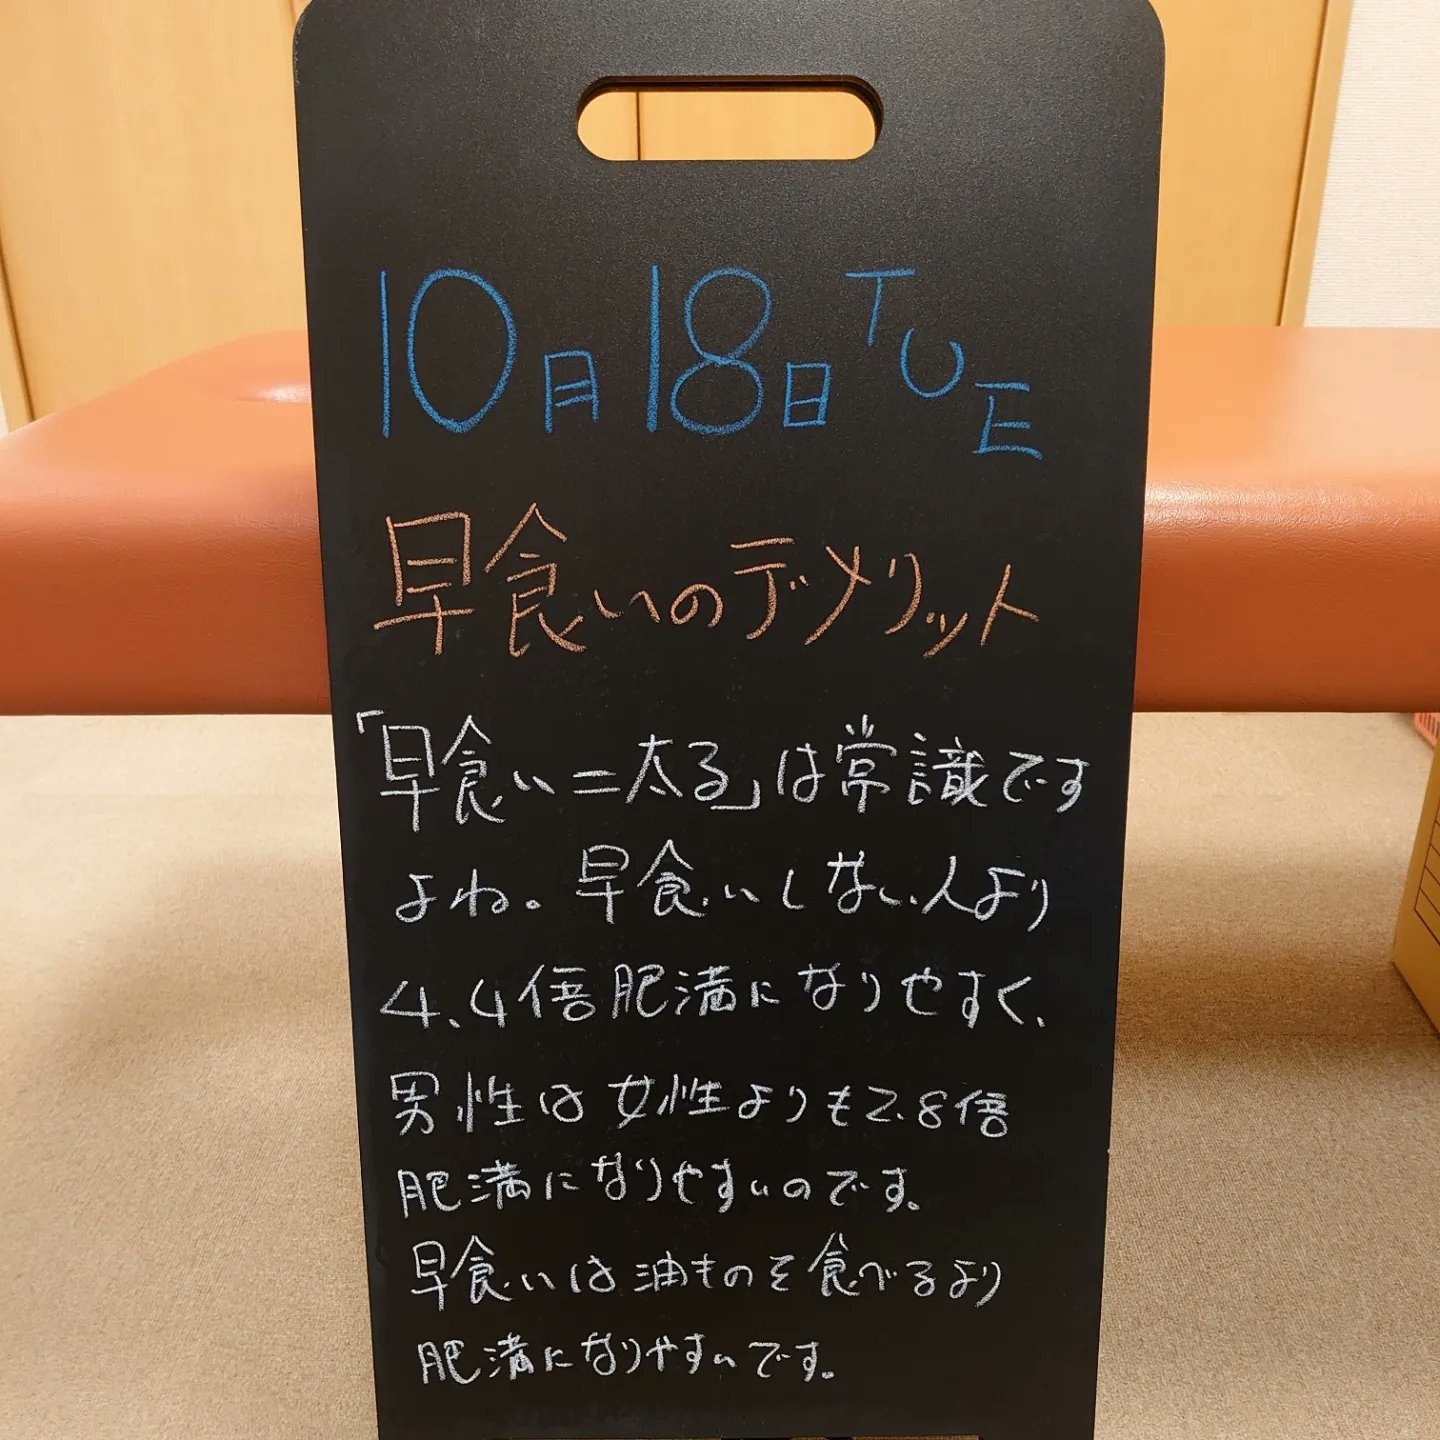 10月18日TUE
早食いのデメリット
「早食い=太る」は常識です
よね。早食いしない人より
4.4倍肥満になりやすく、
男性は女性よりも2.8倍
肥満になりやすいのです。
早食いは油ものを食べるより
肥満になりやすいです。